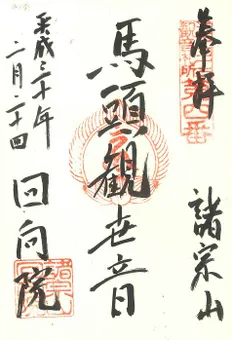 奉拝
第四番
諸宗山
馬頭観世音
平成三十年
二月二十四
回向院